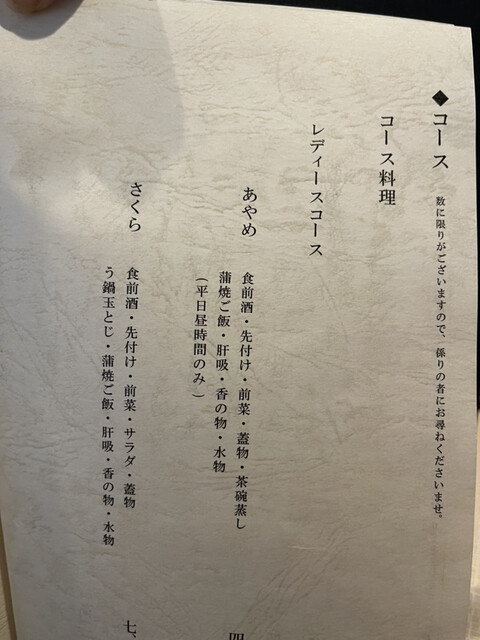 ◆コース 数に限りがございますので、係りの者にお尋ねくださいませ。
コース料理
レディースコース
あやめ 食前酒・先付け・前菜・蓋物・茶碗蒸し
蒲焼ご飯・肝吸・香の物・水物
（平日昼時間のみ）
四
さくら 食前酒・先付け・前菜・サラダ・蓋物
う鍋玉とじ・蒲焼ご飯・肝吸・香の物・水物
七、